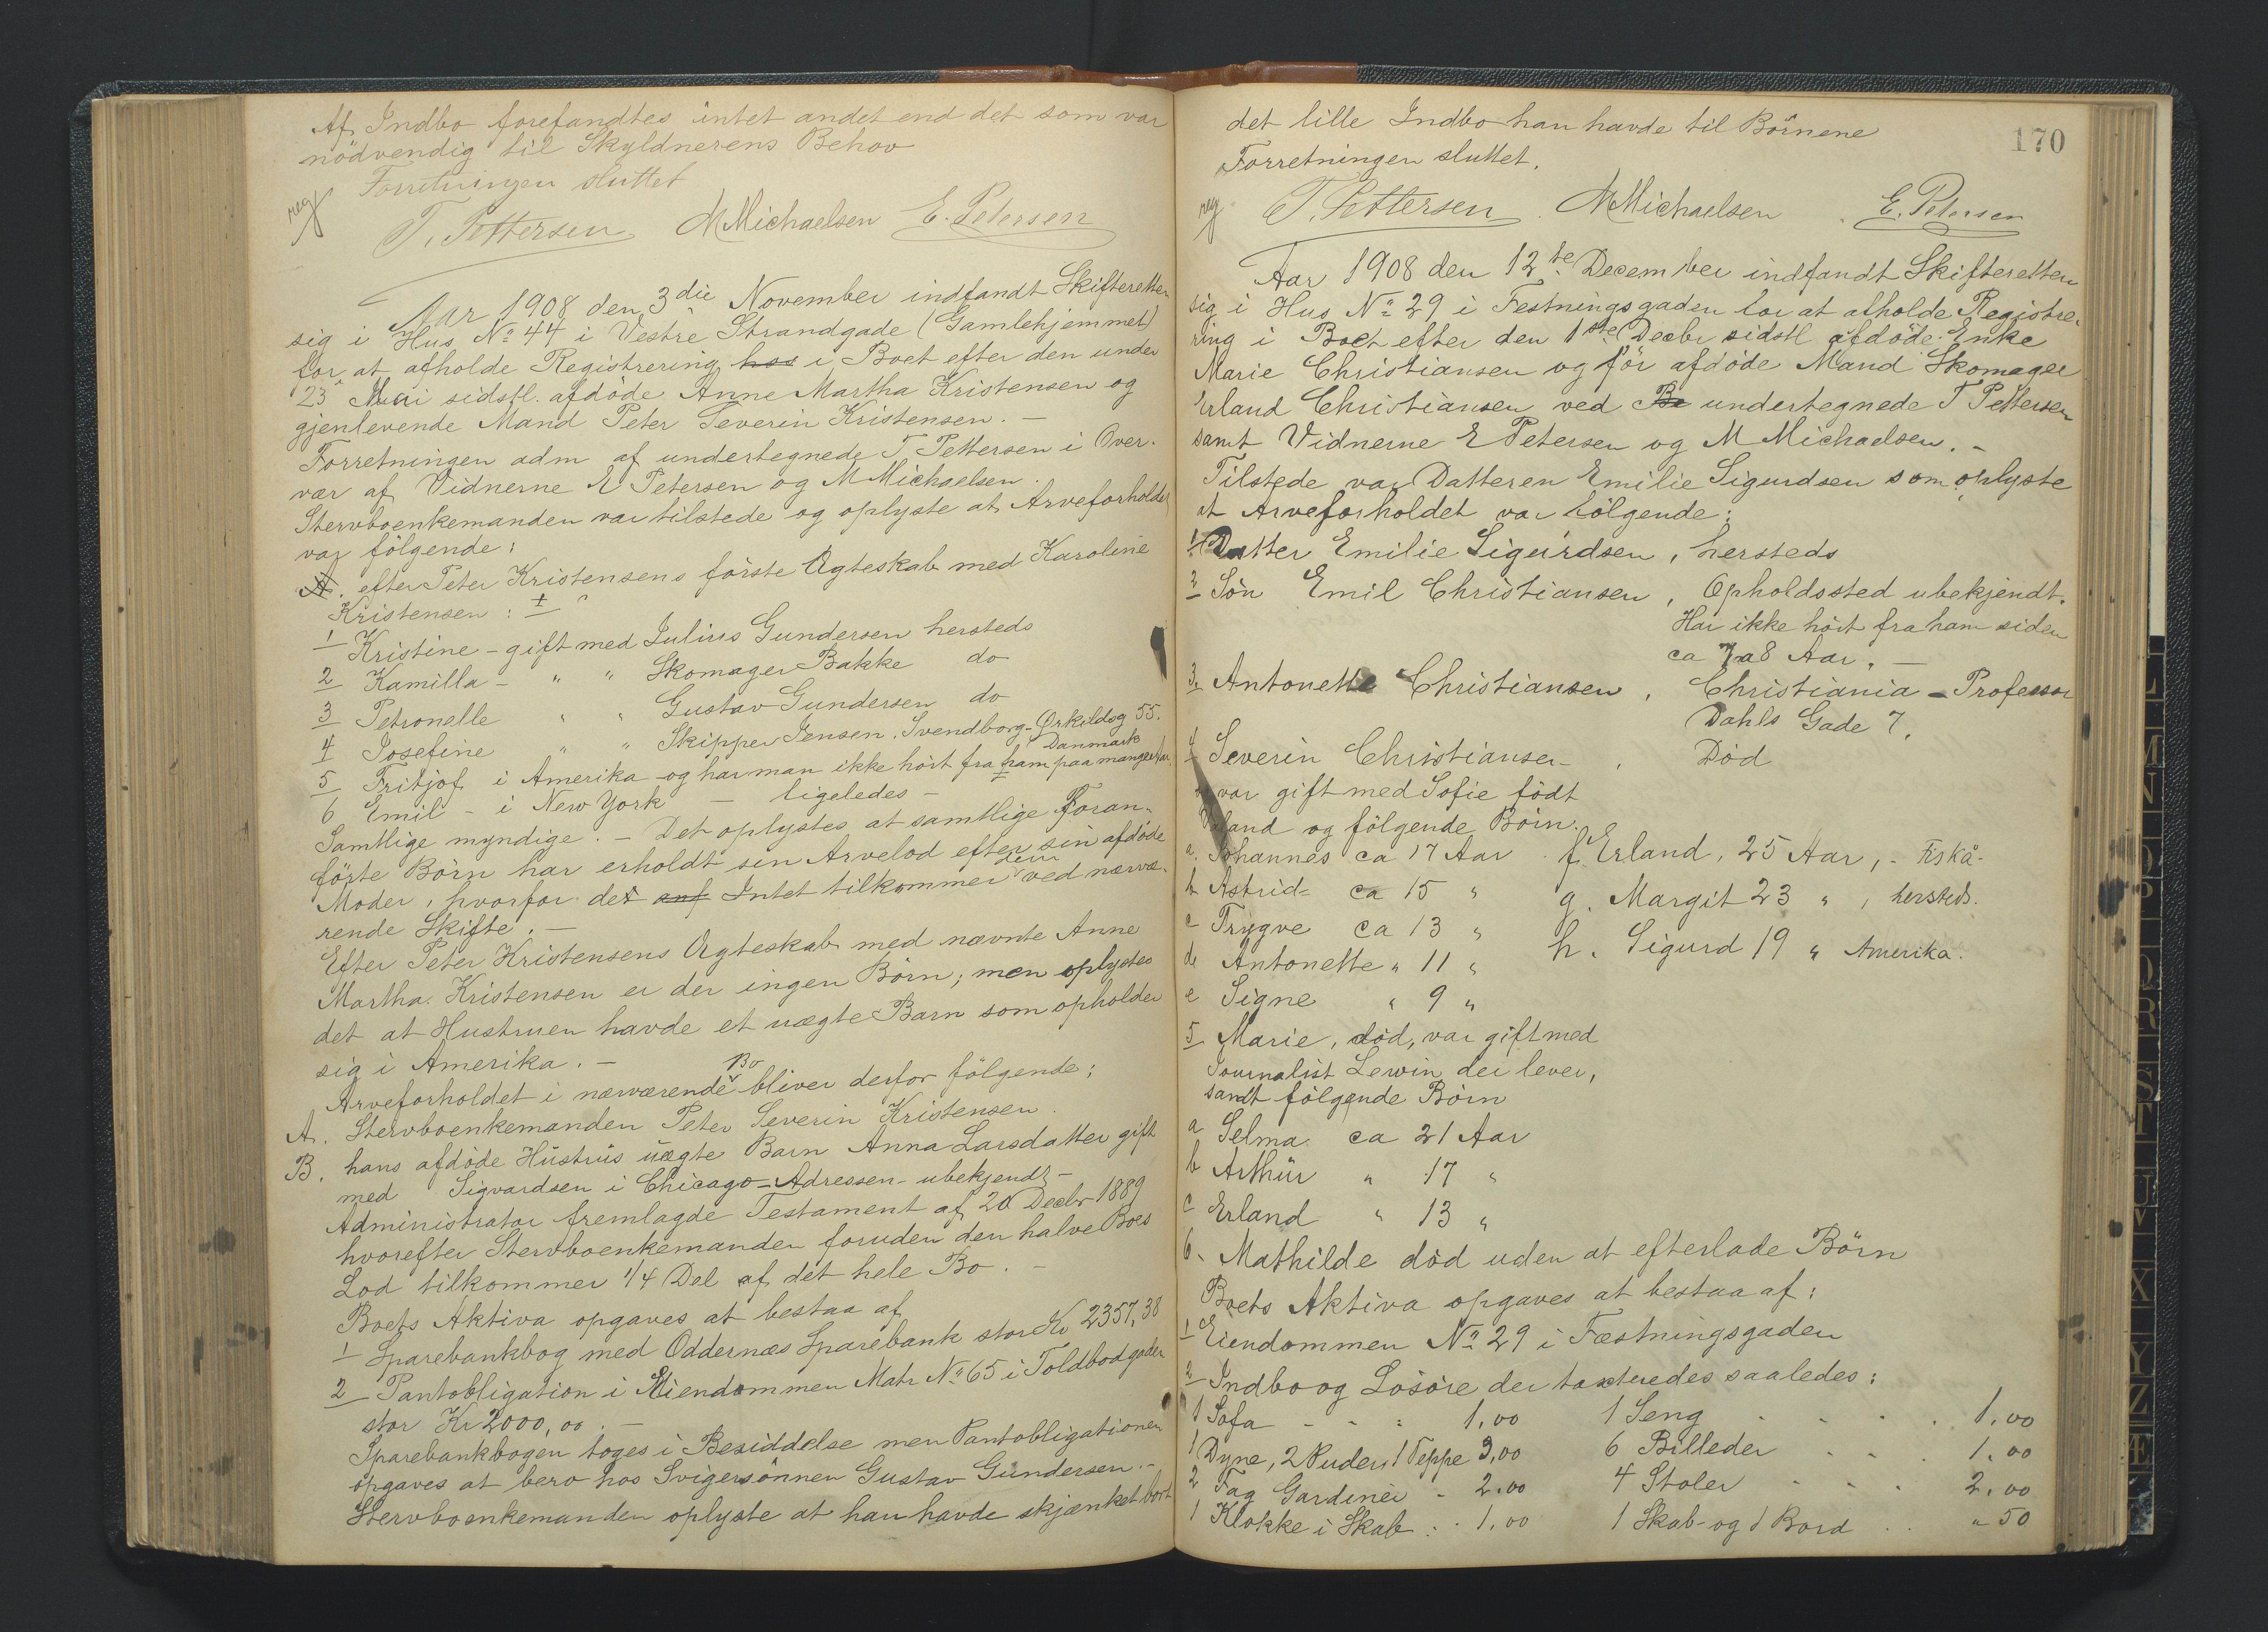 Af Indbo forefandtes intet andet end det som var
nödvendig til Skyldnerens Behov
Forretningen sluttet
reg
T. Pettersen M Michaelsen E. Petersen
Aar 1908 den 3die November indfandt Skifteretten
sig i Hus No 44 i Vestre Strandgade (Gamlehjemmet)
for at afholde Registrering hos i Boet efter den under
23 Mai sidstl. afdöde Anne Martha Kristensen og
gjenlevende Mand Peter Severin Kristensen. —
Forretningen adm af undertegnede T. Pettersen i Over-
vær af Vidnerne E Petersen og M Michaelsen.
Stervboenkemanden var tilstede og oplyste at Arveforholdet
var fölgende:
A. efter Peter Kristensens förste Ægteskab med Karoline
Kristensen:
1 Kristine - gift med Julius Gundersen hersteds
2 Kamilla - " " Skomager Bakke do
3 Petronelle " " Gustav Gundersen do
4 Josefine " " Skipper Jensen, Svendborg - Ørkildsg 55.
Danmark
5 Fritjof i Amerika og har man ikke hört fra ham paa mange Aar.
6 Emil - i New York — ligeledes -
Samtlige myndige. - Det oplystes at samtlige foran-
förte Börn har erholdt sin Arvelod efter sin afdöde
Moder, hvorfor det anf Intet tilkommer dem ved nærvæ-
rende Skifte. —
Efter Peter Kristensens Ægteskab med nævnte Anne
Martha Kristensen er der ingen Börn; men oplystes
det at Hustruen havde et uægte Barn som opholder
sig i Amerika. —
Arveforholdet i nærværende Bo bliver derfor fölgende:
A. Stervboenkemanden Peter Severin Kristensen.
B. hans afdöde Hustrus uægte Barn Anna Larsdatter gift
med Sigvardsen i Chicago - Adressen - ubekjendt -
Administrator fremlagde Testament af 20 Decbr 1889
hvorefter Stervboenkemanden foruden den halve Boes
Lod tilkommer 1/4 Del af det hele Bo. —
Boets Aktiva opgaves at bestaa af
1 Sparebankbog med Oddernæs Sparebank stor Kr 2357,38
2 Pantobligation i Eiendommen Matr No 65 i Toldbodgaden
stor Kr 2000,00. —
Sparebankbogen toges i Besiddelse men Pantobligationen
opgaves at bero hos Svigersönnen Gustav Gundersen. -
Stervboenkemanden oplyste at han havde skjænket bort
170
det lille Indbo han havde til Börnene
Forretningen sluttet.
reg.
T. Pettersen. M Michaelsen. E. Petersen
Aar 1908 den 12te December indfandt Skifteretten
sig i Hus No 29 i Festningsgaden for at afholde Registre-
ring i Boet efter den 1ste Decbr sidstl afdöde Enke
Marie Christiansen og för afdöde Mand Skomager
Erland Christiansen ved Be undertegnede T Pettersen
samt Vidnerne E Petersen og M Michaelsen. -
Tilstede var Datteren Emilie Sigurdsen som oplyste
at Arveforholdet var fölgende:
1 Datter Emilie Sigurdsen, hersteds
2 Sön Emil Christiansen, Opholdssted ubekjendt.
Har ikke hört fra ham siden
ca 7 a 8 Aar. —
3 Antonette Christiansen, Christiania - Professor
Dahls Gade 7.
4 Severin Christiansen, Död
og var gift med Sofie födt
og fölgende Börn:
a. Johannes ca 17 Aar. f. Erland, 25 Aar, - Fiskå-
b Astrid- ca 15 " g. Margit 23 ", hersteds.
c Trygve ca 13 " h. Sigurd 19 " Amerika.
d Antonette " 11 "
e Signe " 9 "
5 Marie, död, var gift med
Journalist Lewin der lever,
samt fölgende Börn
a Selma ca 21 Aar
b Arthur " 17 "
c Erland " 13 "
6. Mathilde död uden at efterlade Börn
Boets Aktiva opgaves at bestaa af:
1 Eiendommen No 29 i Fæstningsgaden
2 Indbo og Lösöre der taxteredes saaledes:
1 Sofa - - - 1,00 1 Seng . . . . 1,00
1 Dyne, 2 Puder, 1 Teppe 3,00 6 Billeder . . . 1.00
2 Fag Gardiner - 2.00 4 Stoler . . . 2,00
1 Klokke i Skab . . 1,00 1 Skab og 1 Bord . . " 50